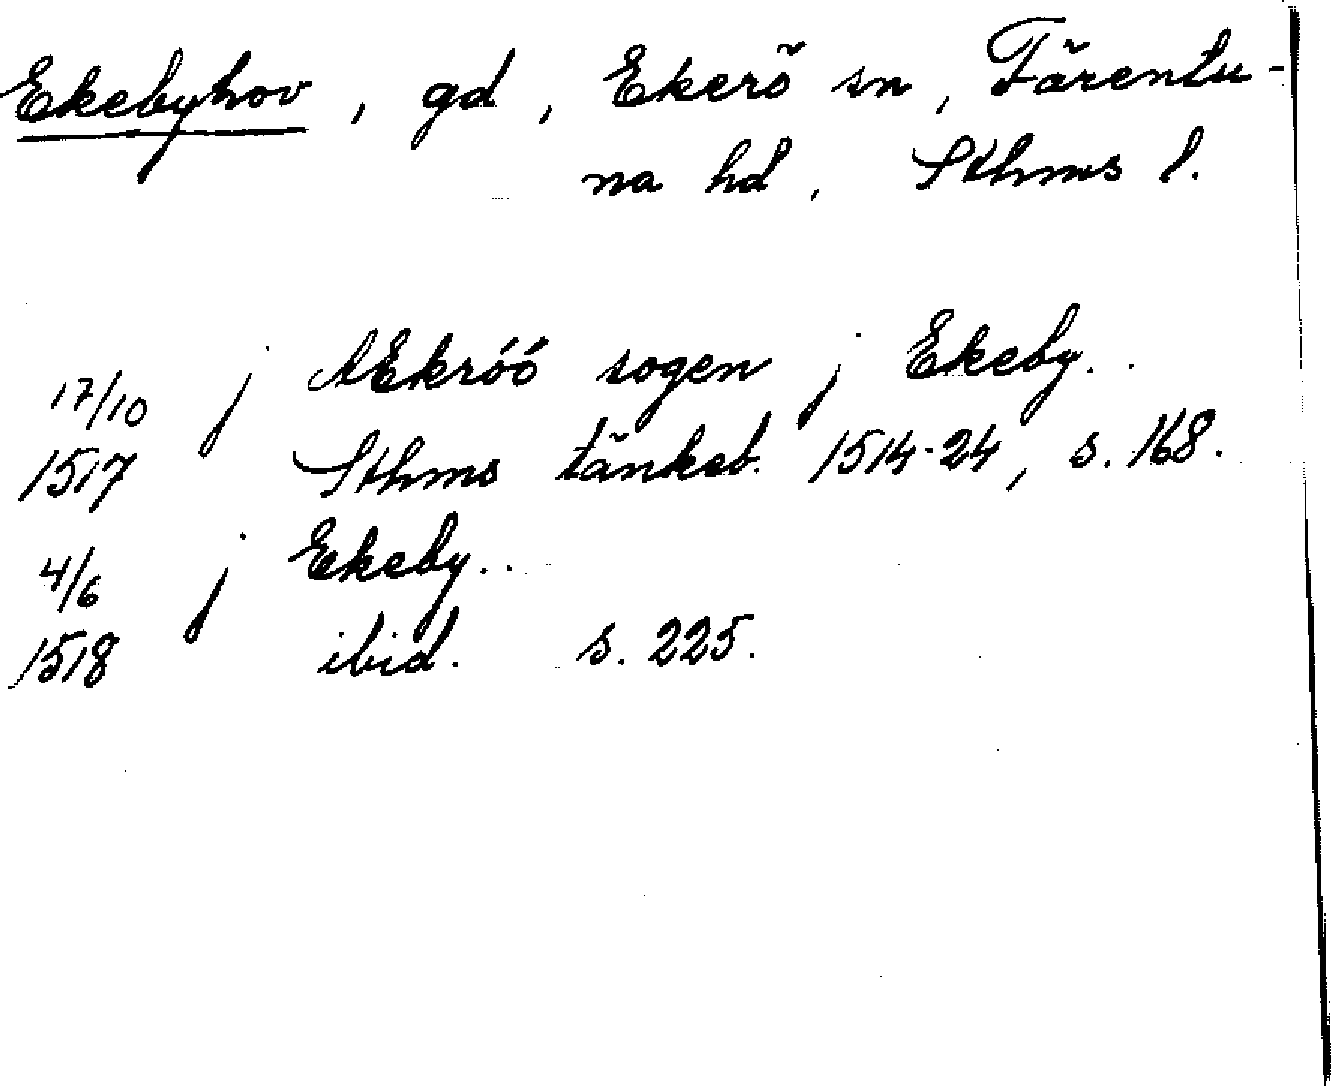 Ekebyhov, gd, Ekerö sn, Färentu-
na hd, Sthms l.
17/10 j Ækróó sogen j Ekeby..
1517 Sthms tänkeb. 1514-24, s. 168.
4/6 j Ekeby..
1518 ibid. s. 225.